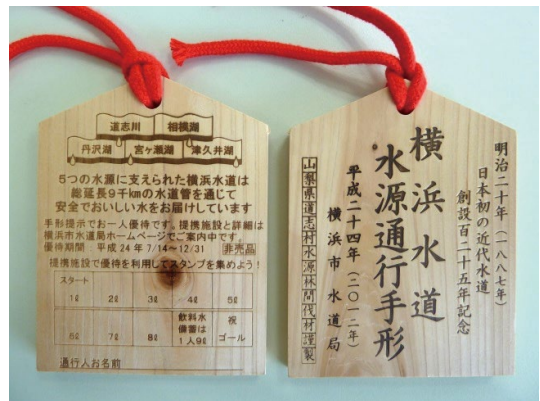 道志川 相模湖
丹沢湖 宮ヶ瀬湖 津久井湖
5つの水源に支えられた横浜水道は
総延長9千kmの水道管を通じて
安全でおいしい水をお届けしています
手形提示でお一人優待です。提携施設と詳細は
横浜市水道局ホームページでご案内中です。
優待期間 平成24年7/14~12/31 非売品
提携施設で優待を利用してスタンプを集めよう!
スタート
1ℓ 2ℓ 3ℓ 4ℓ 5ℓ
6ℓ 7ℓ 8ℓ 飲料水 祝
備蓄は ゴール
1人9ℓ
通行人お名前
明治二十年(一八八七年)
日本初の近代水道
創設百二十五年記念
横浜水道
水源通行手形
平成二十四年(二〇一二年)
横浜市 水道局
山梨県道志村水源林間伐材謹製